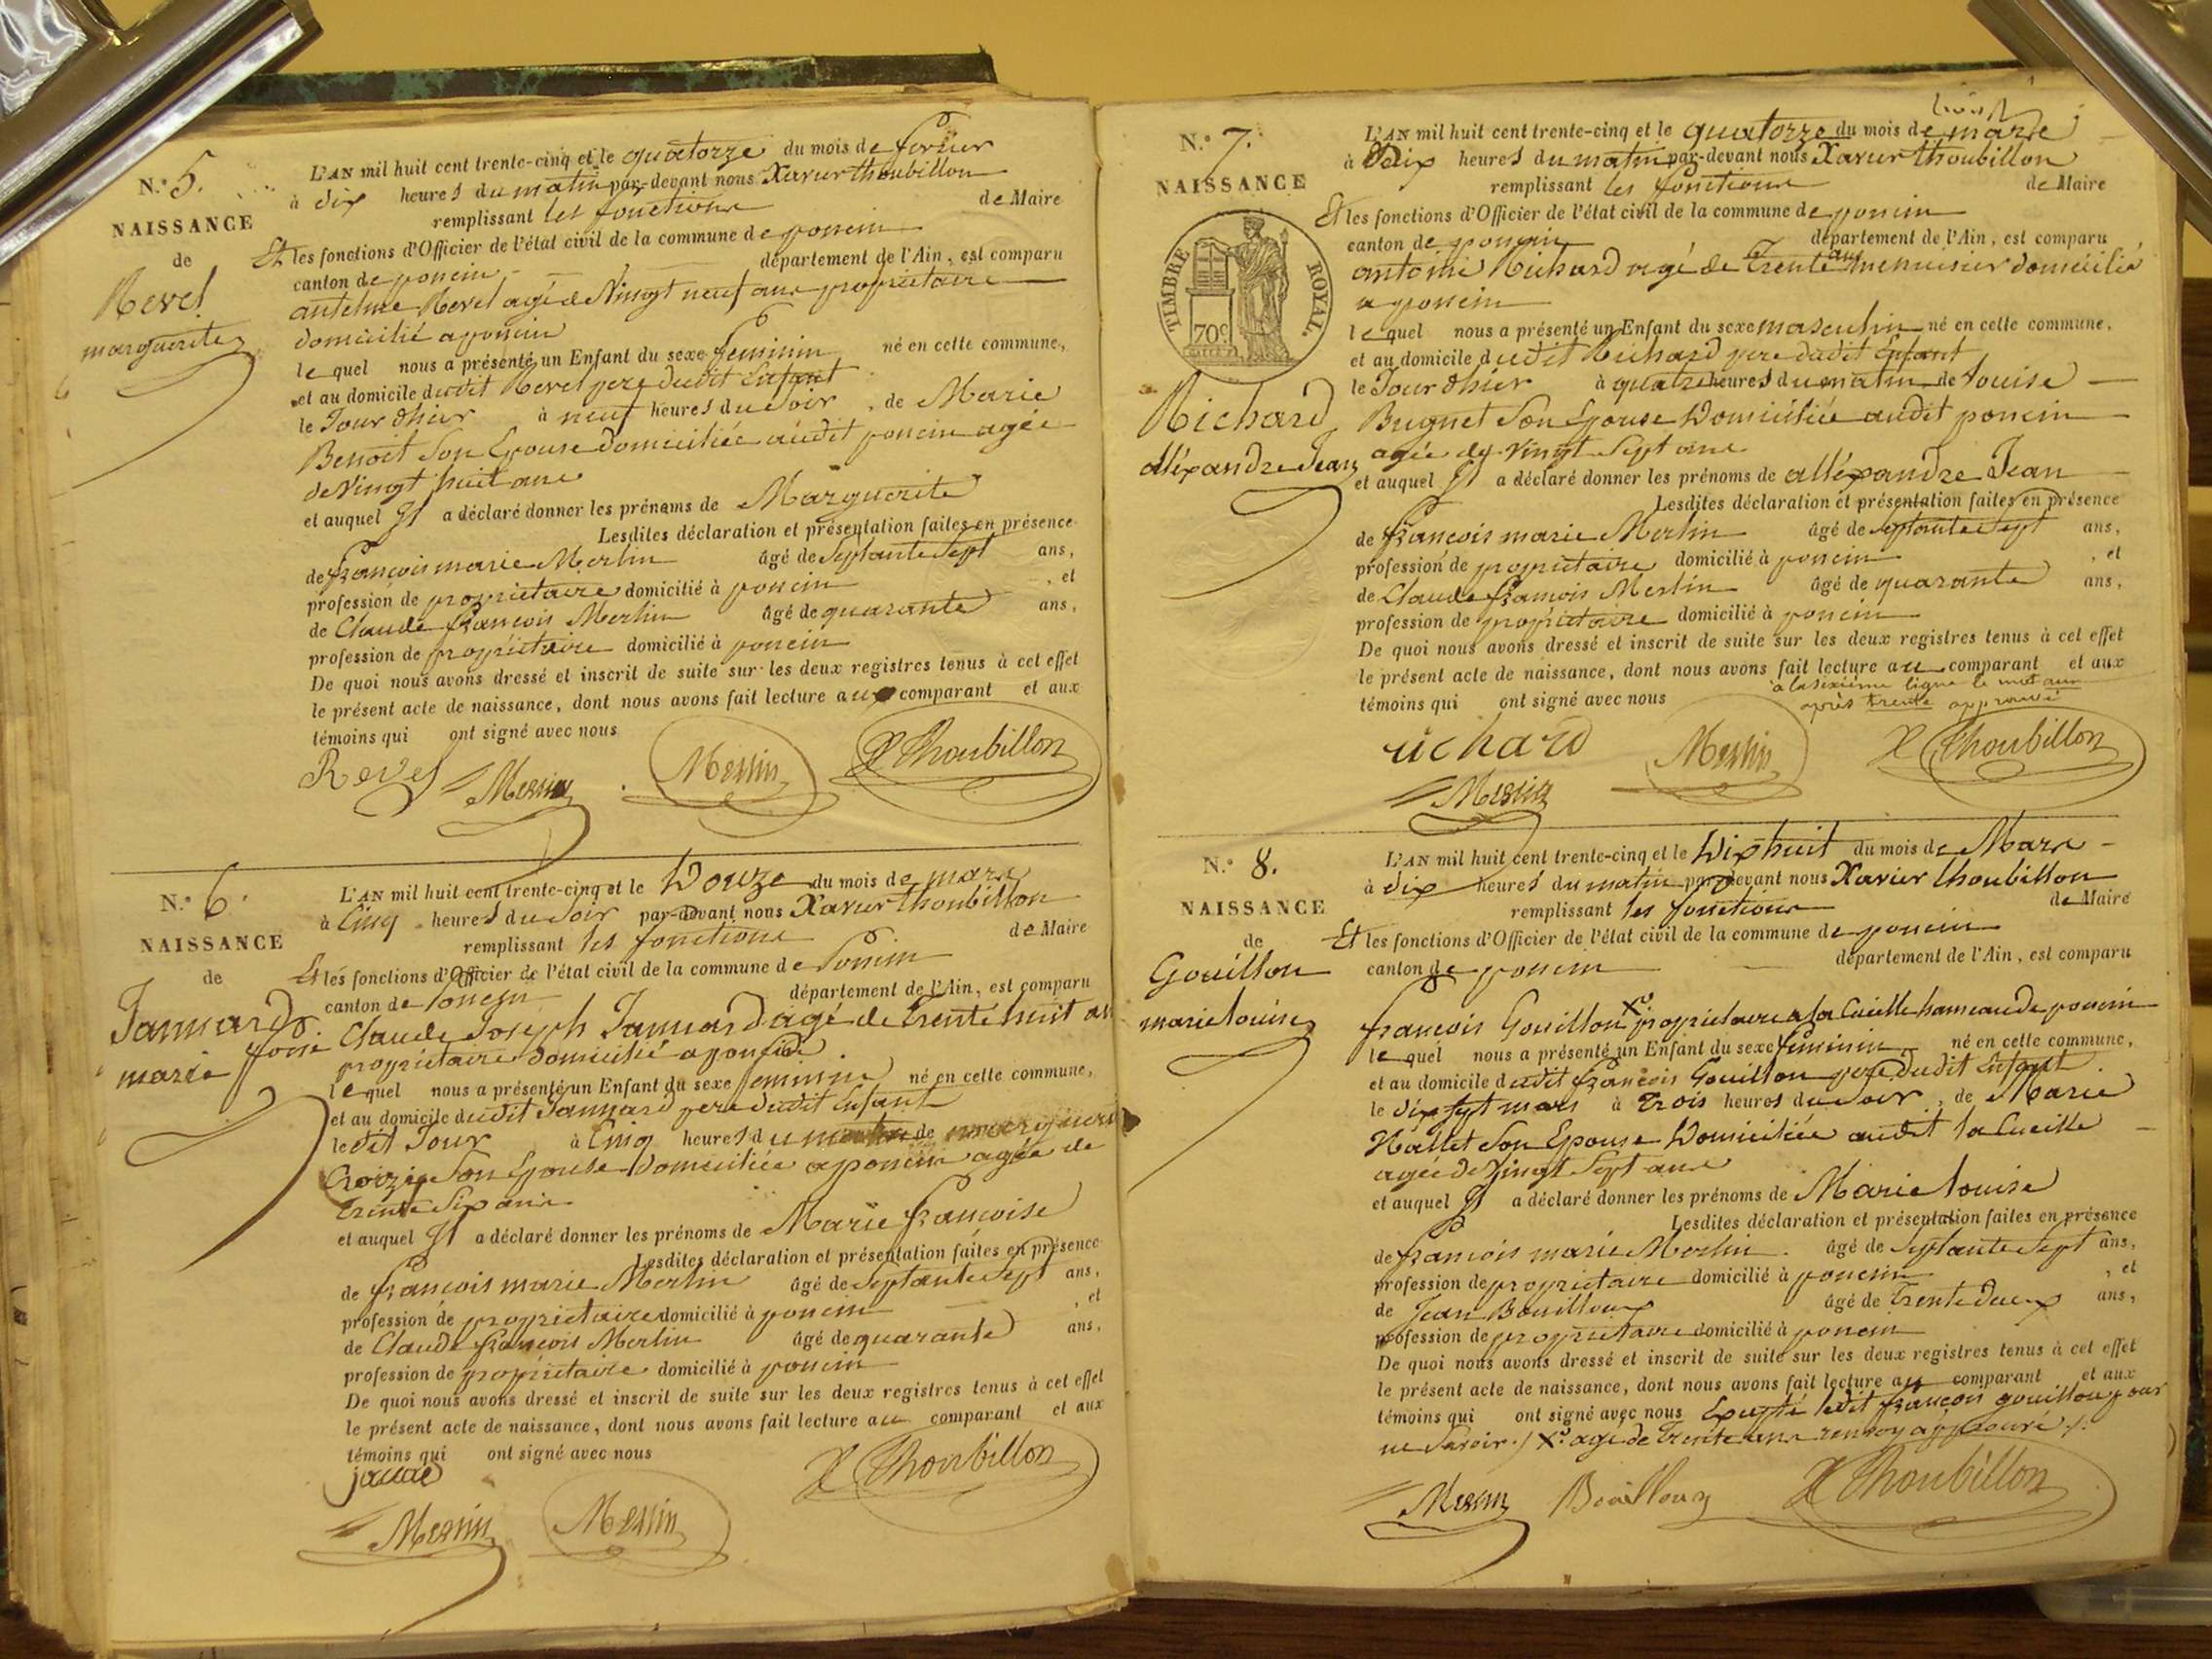 N.° 5.
NAISSANCE
de
Revel
marguerite
L'AN mil huit cent trente-cinq et le quatorze du mois de fevrier
à dix heures du matin par-devant nous Xavier thoubillon
remplissant les fonctions de Maire
Et les fonctions d'Officier de l'état civil de la commune de poncin
canton de poncin département de l'Ain, est comparu
antelme Revel agé de Vingt neuf ans proprietaire
domicilié a poncin
lequel nous a présenté un Enfant du sexe feminin né en cette commune,
et au domicile dudit Revel pere dudit Enfant
le Jour d'hier à neuf heures du Soir, de Marie
Benoit Son Epouse domiciliée audit poncin agée
de Vingt huit ans
et auquel Il a déclaré donner les prénoms de Marguerite
Lesdites déclaration et présentation faites en présence
de françois marie Merlin âgé de Septante Sept ans,
profession de proprietaire domicilié à poncin, et
de Claude françois Merlin âgé de quarante ans,
profession de propriétaire domicilié à poncin
De quoi nous avons dressé et inscrit de suite sur les deux registres tenus à cet effet
le présent acte de naissance, dont nous avons fait lecture au comparant et aux
témoins qui ont signé avec nous
Revel Merlin Merlin X Thoubillon
N.° 6.
NAISSANCE
de
Jannard
marie
L'AN mil huit cent trente-cinq et le Douze du mois de mars
à Cinq heures du Soir par-devant nous Xavier thoubillon
remplissant les fonctions de Maire
Et les fonctions d'Officier de l'état civil de la commune de Poncin
canton de Poncin département de l'Ain, est comparu
Claude Joseph Jannard agé de trente huit ans
proprietaire domicilié a poncin
lequel nous a présenté un Enfant du sexe feminin né en cette commune,
et au domicile dudit Jannard pere dudit Enfant
ledit Jour à Cinq heures du matin de
Croizy Son Epouse domiciliée a poncin agée de
trente Six ans
et auquel Il a déclaré donner les prénoms de Marie françoise
Lesdites déclaration et présentation faites en présence
de françois marie Merlin âgé de Septante Sept ans,
profession de proprietaire domicilié à poncin, et
de Claude françois Merlin âgé de quarante ans,
profession de proprietaire domicilié à poncin
De quoi nous avons dressé et inscrit de suite sur les deux registres tenus à cet effet
le présent acte de naissance, dont nous avons fait lecture au comparant et aux
témoins qui ont signé avec nous
X Thoubillon
Merlin Merlin
N.° 7.
NAISSANCE
TIMBRE ROYAL.
70c
Richard
alléxandre Jean
L'AN mil huit cent trente-cinq et le quatorze du mois de mars
à Dix heures du matin par-devant nous Xavier thoubillon
remplissant les fonctions de Maire
Et les fonctions d'Officier de l'état civil de la commune de poncin
canton de poncin département de l'Ain, est comparu
antoine Richard agé de trente ans menuisier domicilié
a poncin
lequel nous a présenté un Enfant du sexe masculin né en cette commune,
et au domicile dudit Richard pere dudit Enfant
le Jour d'hier à quatre heures du matin de louise
Bugnet Son Epouse Domiciliée audit poncin
agée de vingt Sept ans
et auquel Il a déclaré donner les prénoms de alléxandre Jean
Lesdites déclaration et présentation faites en présence
de françois marie Merlin âgé de septante Sept ans,
profession de proprietaire domicilié à poncin, et
de Claude françois Merlin âgé de quarante ans,
profession de propriétaire domicilié à poncin
De quoi nous avons dressé et inscrit de suite sur les deux registres tenus à cet effet
le présent acte de naissance, dont nous avons fait lecture au comparant et aux
témoins qui ont signé avec nous à la sixième ligne le mot ans
après trente approuvé
richard Merlin X Thoubillon
Merlin
N.° 8.
NAISSANCE
de
Gouillon
marie louise
L'AN mil huit cent trente-cinq et le Dix huit du mois de Mars
à dix heures du matin par-devant nous Xavier thoubillon
remplissant les fonctions de Maire
Et les fonctions d'Officier de l'état civil de la commune de poncin
canton de poncin département de l'Ain, est comparu
françois Gouillon X° proprietaire a la Cueille hameau de poncin
lequel nous a présenté un Enfant du sexe féminin né en cette commune,
et au domicile dudit françois Gouillon pere dudit Enfant
le dix sept mars à trois heures du Soir, de Marie
Hallet Son Epouse Domiciliée audit la Cueille
agée de Vingt Sept ans
et auquel Il a déclaré donner les prénoms de Marie louise
Lesdites déclaration et présentation faites en présence
de françois marie Merlin âgé de Septante Sept ans,
profession de proprietaire domicilié à poncin, et
de Jean Bouilloux âgé de trente deux ans,
profession de proprietaire domicilié à poncin
De quoi nous avons dressé et inscrit de suite sur les deux registres tenus à cet effet
le présent acte de naissance, dont nous avons fait lecture au comparant et aux
témoins qui ont signé avec nous Excepté ledit françois gouillon pour
ne Savoir ./ X° agé de trente ans renvoy approuvé ./.
Merlin Bouilloux X Thoubillon